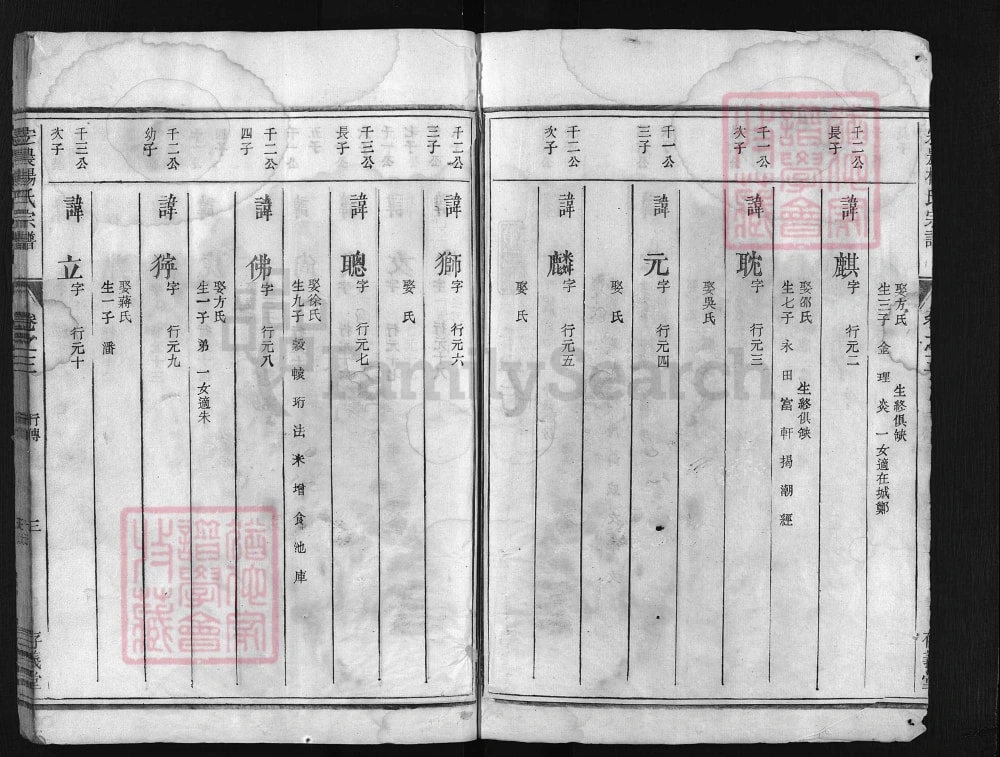 千二公
長子
諱麒字 行元二
娶方氏 生終俱缺
生三子 金 理 炎 一女適在城鄭
千一公
次子
諱耽字 行元三
娶邵氏 生終俱缺
生七子 永 田 富 軒 揭 潮 經
千一公
三子
諱元字 行元四
娶吳氏
千二公
次子
諱麟字 行元五
娶 氏
娶 氏
千二公
三子
諱獅字 行元六
娶 氏
千三公
長子
諱聰字 行元七
娶徐氏
生九子 轅 珩 法 米 增 食 池 庫
千二公
四子
諱佛字 行元八
娶方氏
生一子 弟 一女適朱
千二公
幼子
諱猙字 行元九
娶蔣氏
生一子 潘
千三公
次子
諱立字 行元十
楊氏宗譜
卷之三
行傳
三
存義堂
FamilySearch